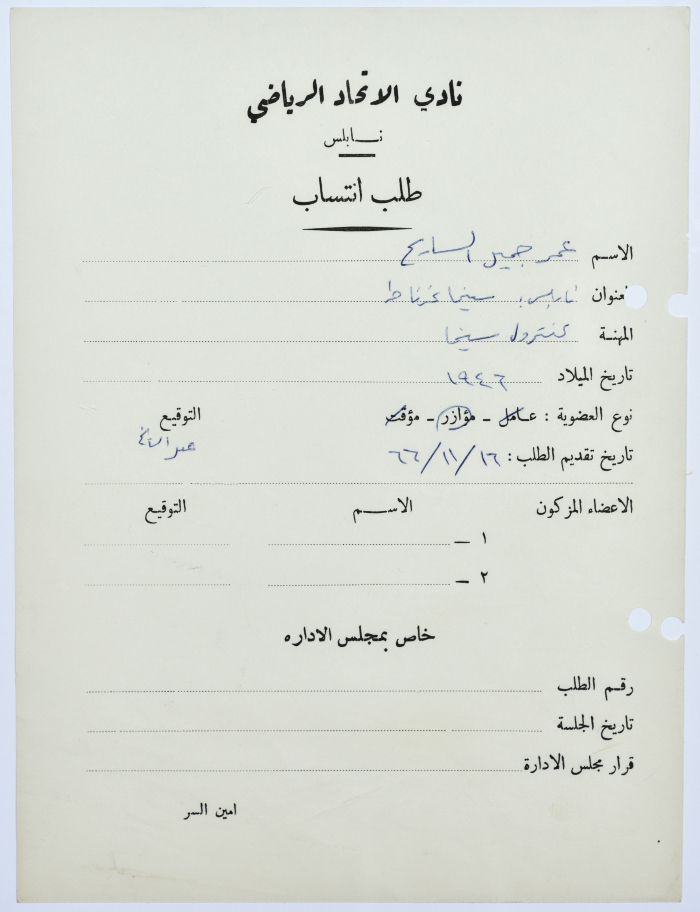 نادي الاتحاد الرياضي
نـــابلس
طلب انتساب
الاسـم عمر جميل السايح
العنوان نابلس: سينما غرناطة
المهنـة كنترول سينما
تاريخ الميلاد ١٩٤٦
نوع العضوية : عـامل ـ مؤازر ـ مؤقت التوقيع
تاريخ تقديم الطلب : ١٦/١١/٦٦
الاعضاء المزكون الاســـم التوقيـع
١ ــ
٢ ــ
خاص بمجلس الاداره
رقـم الطلب
تاريخ الجلسة
قرار مجلس الادارة
امين السر